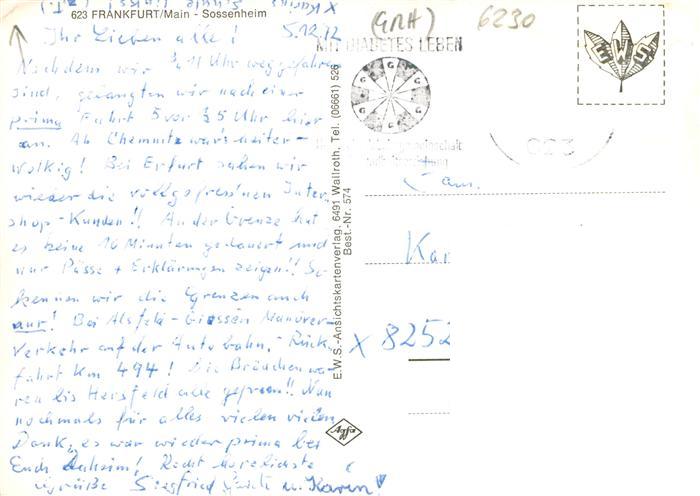 623 FRANKFURT/Main - Sossenheim
5.12.
Ihr Lieben alle!
Nachdem wir 3/4 11 Uhr weggefahren
sind, gelangten wir nach einer
prima Fahrt 5 vor 3/4 5 Uhr hier
an. Ab Chemnitz war's heiter-
wolkig! Bei Erfurt sahen wir
wieder die vollgefress'nen Inter-
shop-Kunden!! An der Grenze hat
es keine 10 Minuten gedauert und
nur Pässe + Erklärungen zeigen!! So
kennen wir die Grenzen auch
nur! Bei Alsfeld-Giessen Manöver-
Verkehr auf der Autobahn. Rück-
fahrt Km 494! Die Brücken wa-
ren bis Hersfeld alle gefroren!! Nun
nochmals für alles vielen vielen
Dank, es war wieder prima bei
Euch daheim! Recht herzlichste
Grüße Siegfried u. Karin!
(GRH)
6230
MIT DIABETES LEBEN
G
EWS
E.W.S.-Ansichtskartenverlag, 6491 Wallroth, Tel. (06661) 526
Best.-Nr. 574
Fam.
Kar
X 8252
Agfa